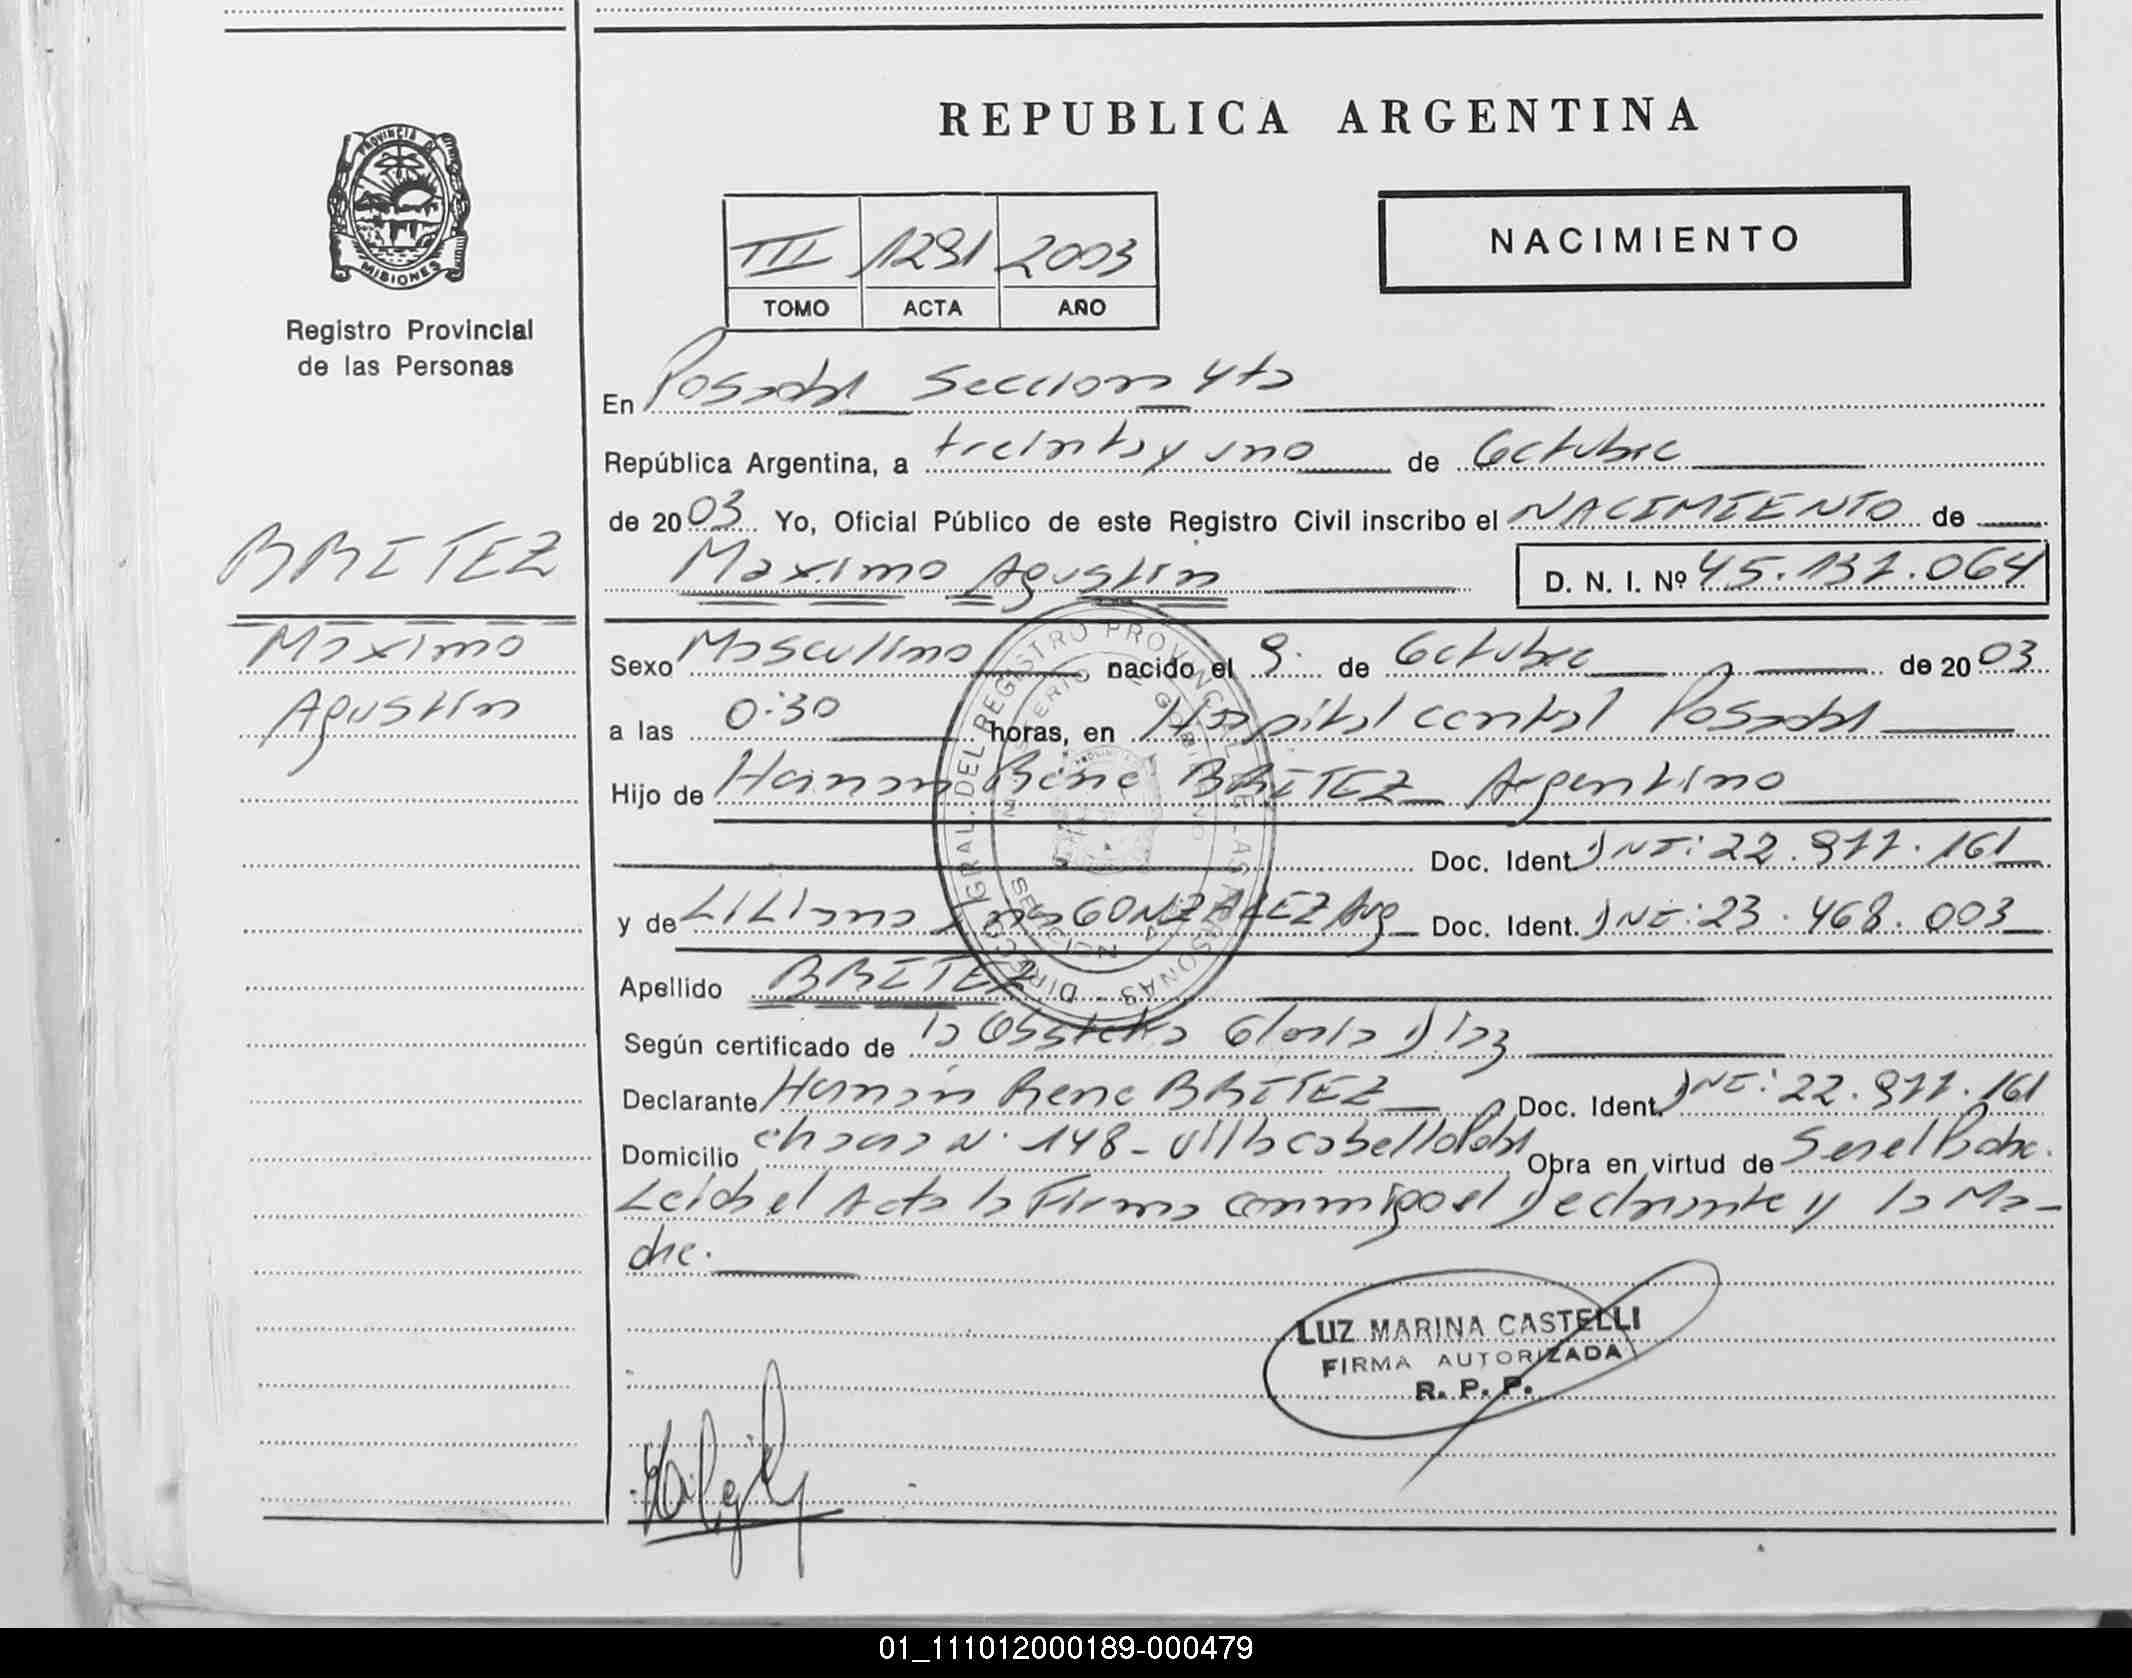 REPUBLICA ARGENTINA
PROVINCIA DE
MISIONES
Registro Provincial
de las Personas
III 1291 2003
TOMO ACTA AÑO
NACIMIENTO
En Posadas Seccion 4ta
República Argentina, a treinta y uno de Octubre
de 2003 Yo, Oficial Público de este Registro Civil inscribo el NACIMIENTO de
BRITEZ
Maximo Agustin D. N. I. Nº 45.137.064
Maximo
Agustin
Sexo Masculino nacido el 9. de Octubre de 2003
a las 0:30 horas, en Hospital central Posadas
Hijo de Hernan Rene BRITEZ Argentino
Doc. Ident. DNI: 22.977.161
y de Liliana GONZALEZ Arg Doc. Ident. DNI: 23.468.003
Apellido BRITEZ
Según certificado de la Obstetra Gloria Diaz
Declarante Hernan Rene BRITEZ Doc. Ident. DNI: 22.977.161
Domicilio chacra N. 148 - Villa cabello Pdas Obra en virtud de Ser el Padre.
Leida el Acta la Firma conmigo el Declarante y la Ma-
dre.
DIRECC. GRAL. DEL REGISTRO PROVINCIAL DE LAS PERSONAS
MINISTERIO DE GOBIERNO
SECCION 4
LUZ MARINA CASTELLI
FIRMA AUTORIZADA
R. P. P.
01_111012000189-000479